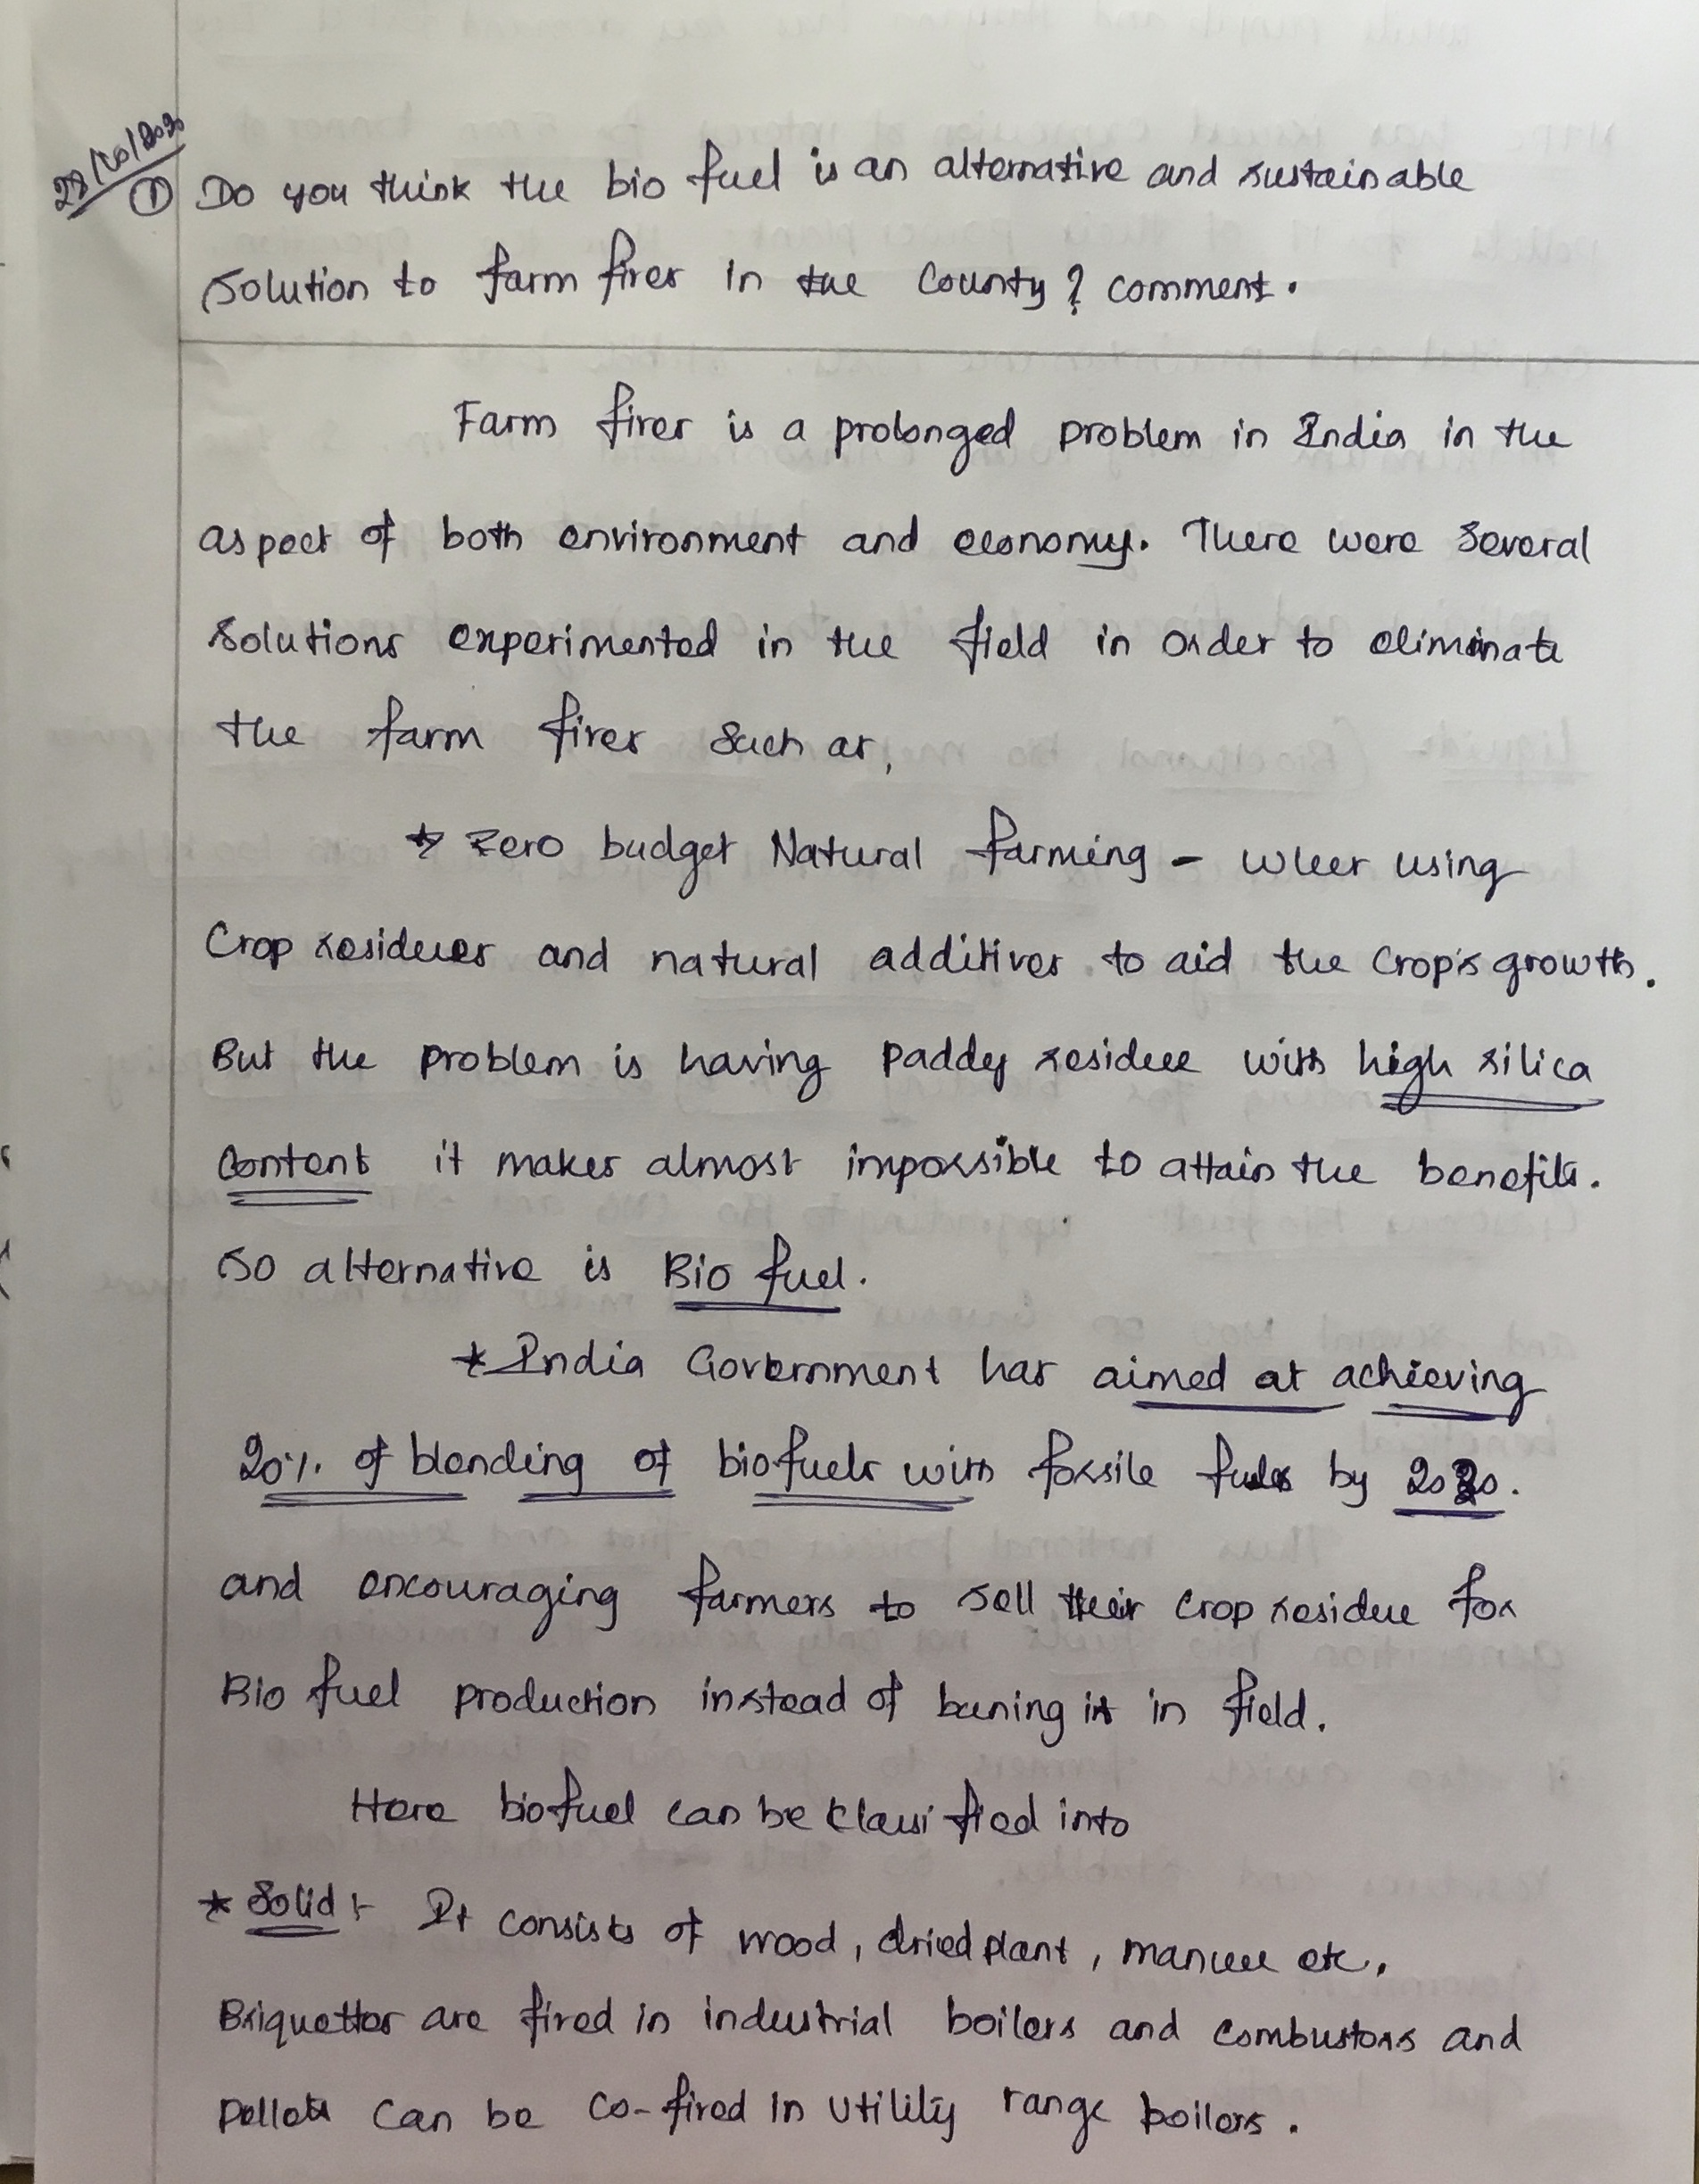 ① Do you think the bio fuel is an alternative and sustainable
solution to farm fires in the County? comment.
Farm fires is a prolonged problem in India in the
aspect of both environment and economy. There were several
solutions experimented in the field in order to eliminate
the farm fires such as,
* Zero budget Natural farming - wleer using
Crop residues and natural additives to aid the crop's growth.
But the problem is having paddy residue with high silica
content it makes almost impossible to attain the benefits.
so alternative is Bio fuel.
* India Government has aimed at achieving
20% of blending of biofuels with fossile fules by 2030.
and encouraging farmers to sell their crop residue for
Bio fuel production instead of buning it in field.
Here biofuel can be classified into
* Solid :- It consists of wood, dried plant, manure etc.
Briquettes are fired in industrial boilers and combustors and
pellets can be co-fired in utility range boilers.